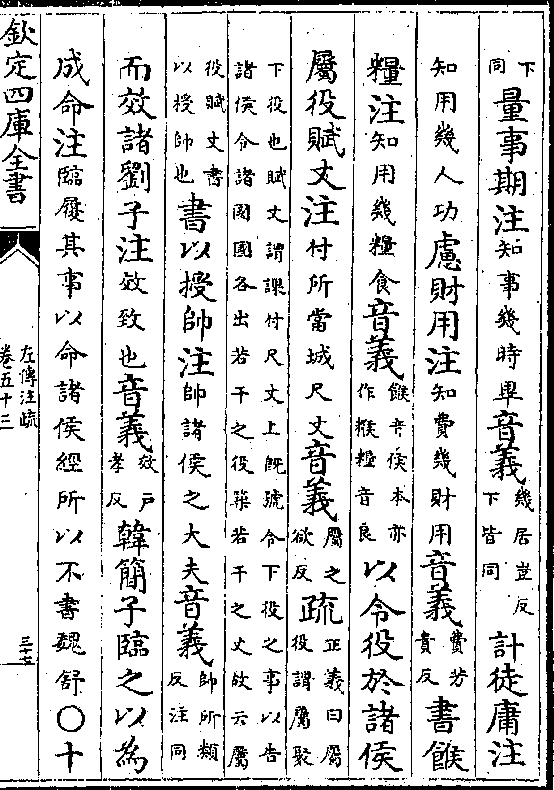 下同量事期注知事幾時畢音義幾居豈反下皆同計徒庸注
知用幾人功慮財用注知費幾財用音義費芳貴反書餱
糧注知用幾糧食音義餱音侯本亦作糇糧音良以令役於諸侯
屬役賦丈注付所當城尺丈音義屬之欲反疏正義曰屬役謂屬聚
下役也賦丈謂課付尺丈上既號令下役之事以告
諸侯令諸國國各出若干之役築若干之丈故云屬
役賦丈書以授帥也書以授帥注帥諸侯之大夫音義帥所類反注同
而效諸劉子注效致也音義效户孝反韓簡子臨之以為
成命注臨履其事以命諸侯經所以不書魏舒○十
欽定四庫全書
左傳注疏
卷五十三
三十七